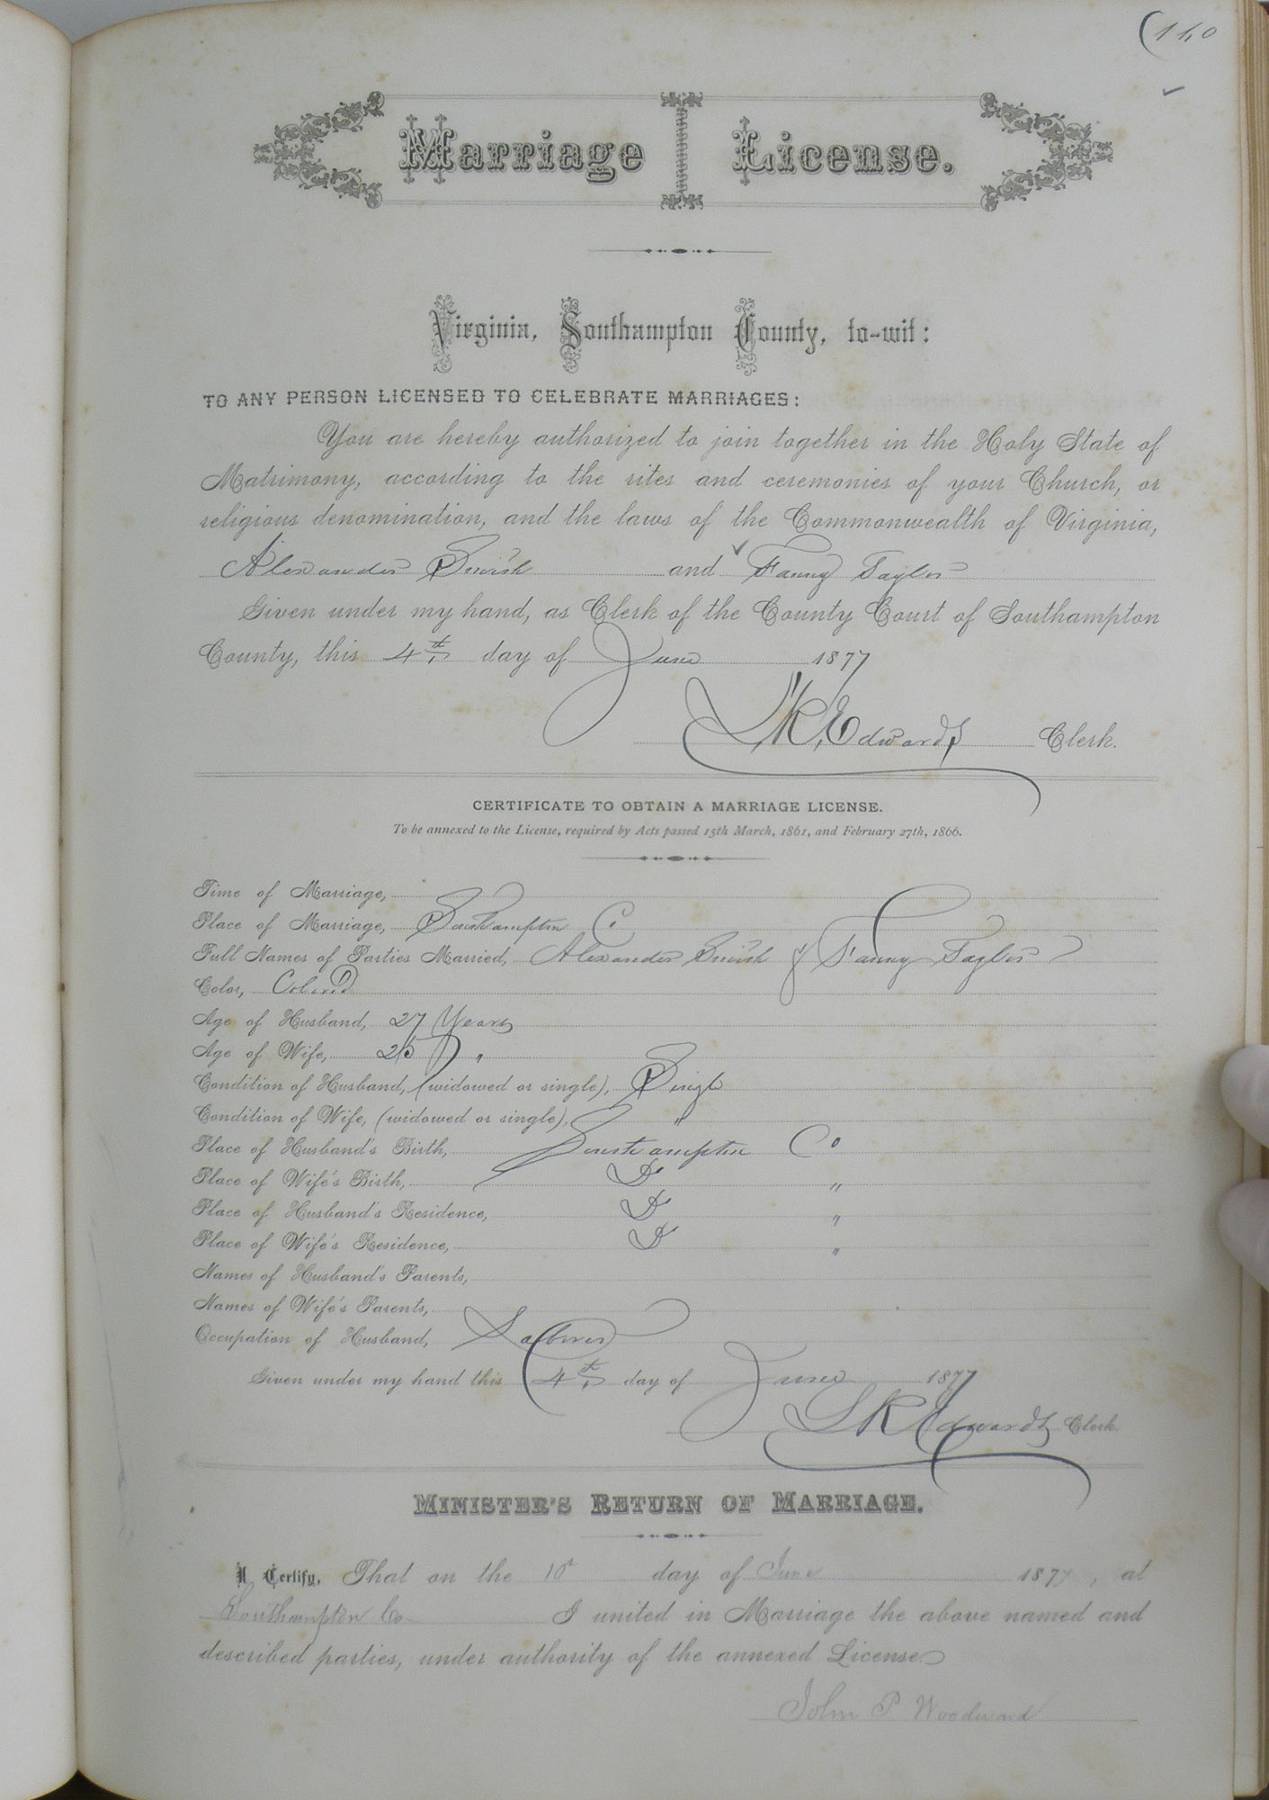 (160
Marriage License.
Virginia, Southampton County, to-wit:
TO ANY PERSON LICENSED TO CELEBRATE MARRIAGES:
You are hereby authorized to join together in the Holy State of
Matrimony, according to the rites and ceremonies of your Church, or
religious denomination, and the laws of the Commonwealth of Virginia,
Alexander and Fanny Taylor
Given under my hand, as Clerk of the County Court of Southampton
County, this 4th day of June 1877
L R Edwards Clerk.
CERTIFICATE TO OBTAIN A MARRIAGE LICENSE.
To be annexed to the License, required by Acts passed 15th March, 1861, and February 27th, 1866.
Time of Marriage,
Place of Marriage, Southampton C.
Full Names of Parties Married, Alexander & Fanny Taylor
Color, Colored
Age of Husband, 27 Years
Age of Wife, 25 "
Condition of Husband, (widowed or single), Single
Condition of Wife, (widowed or single), "
Place of Husband's Birth, Southampton Co
Place of Wife's Birth, Do "
Place of Husband's Residence, Do "
Place of Wife's Residence, Do "
Names of Husband's Parents,
Names of Wife's Parents,
Occupation of Husband, Laborer
Given under my hand this 4th day of June 1877
L R Edwards Clerk.
MINISTER'S RETURN OF MARRIAGE.
I Certify, That on the 10th day of June 1877, at
Southampton Co I united in Marriage the above named and
described parties, under authority of the annexed License.
John P Woodward